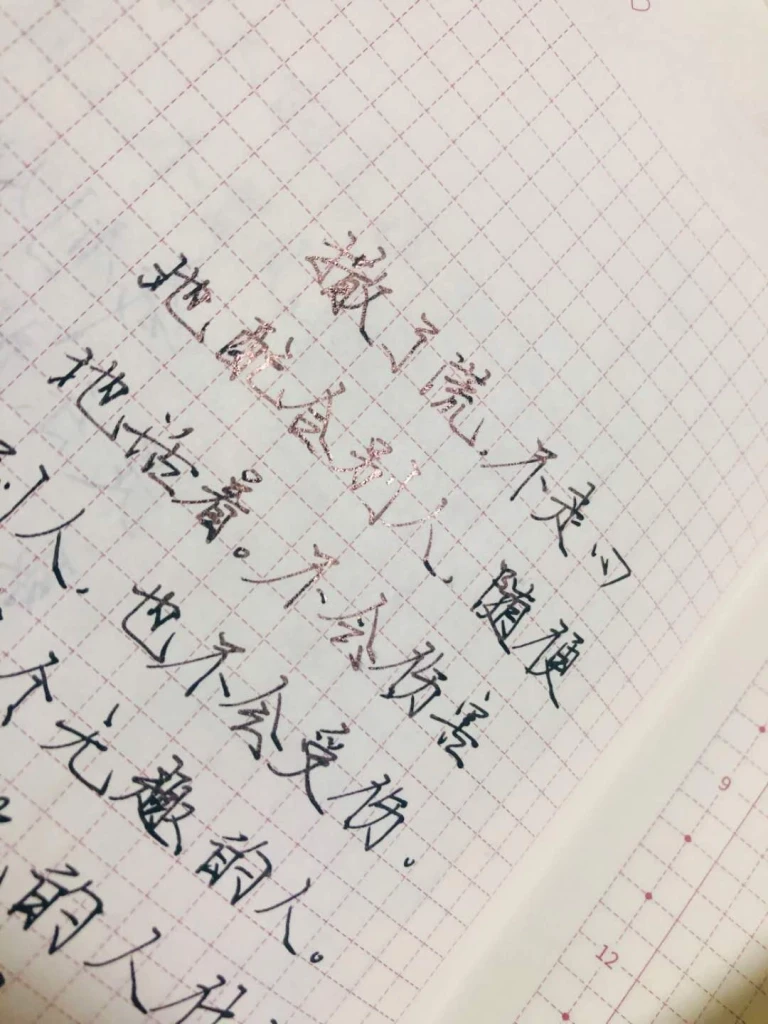 撒了谎，不走心
地敷衍别人，随便
地活着。不会伤害
别人，也不会受伤。
个无趣的人。
的人
9
12